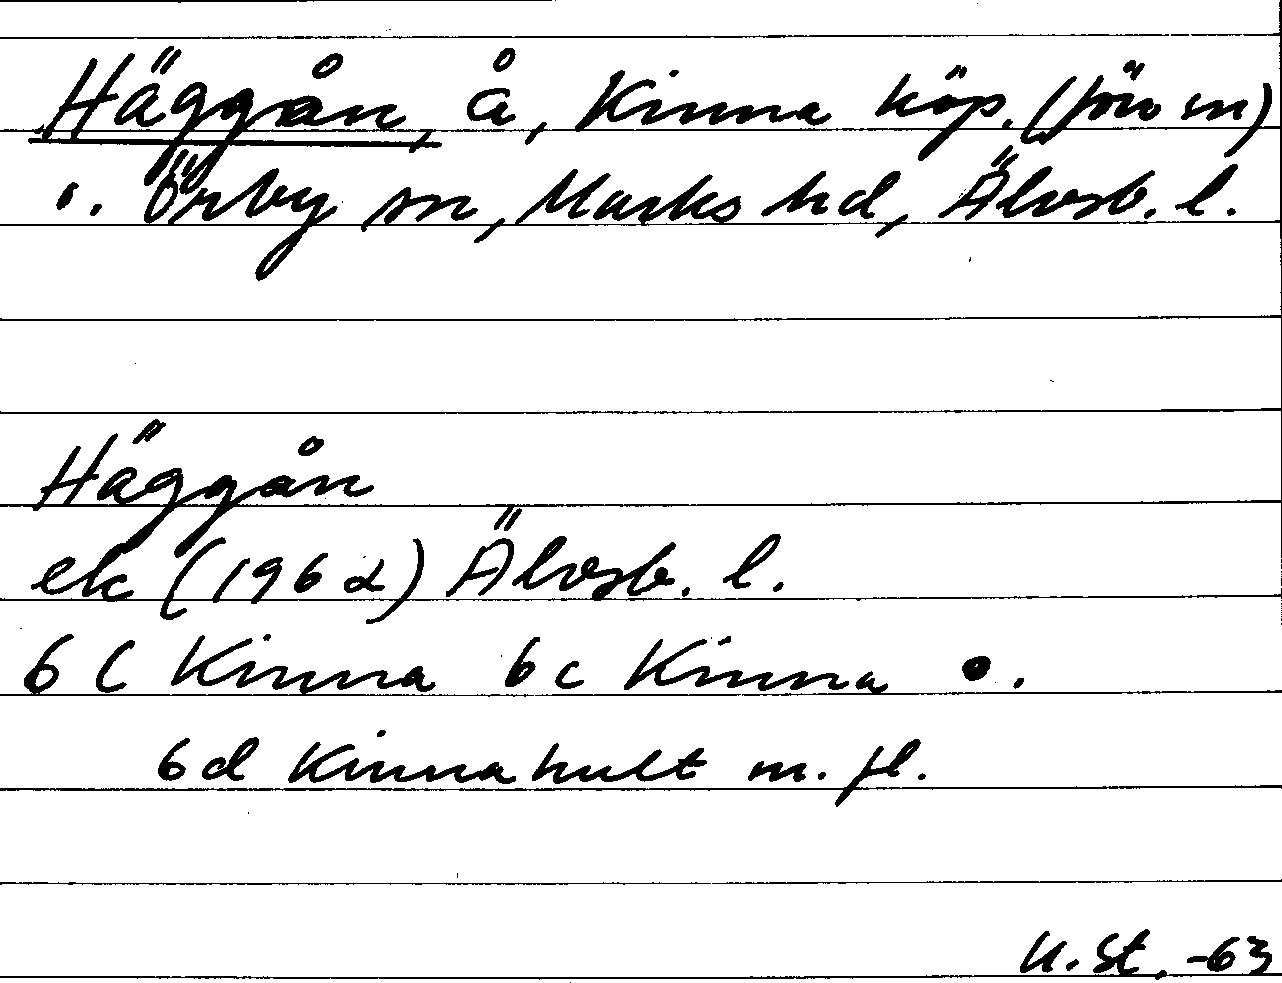 Häggån, å, Kinna köp. (förv sn)
o. Örby sn, Marks hd, Älvsb. l.
Häggån
ek (1962) Älvsb. l.
6 C Kinna 6c Kinna o.
6d Kinnahult m. fl.
U. St. -63